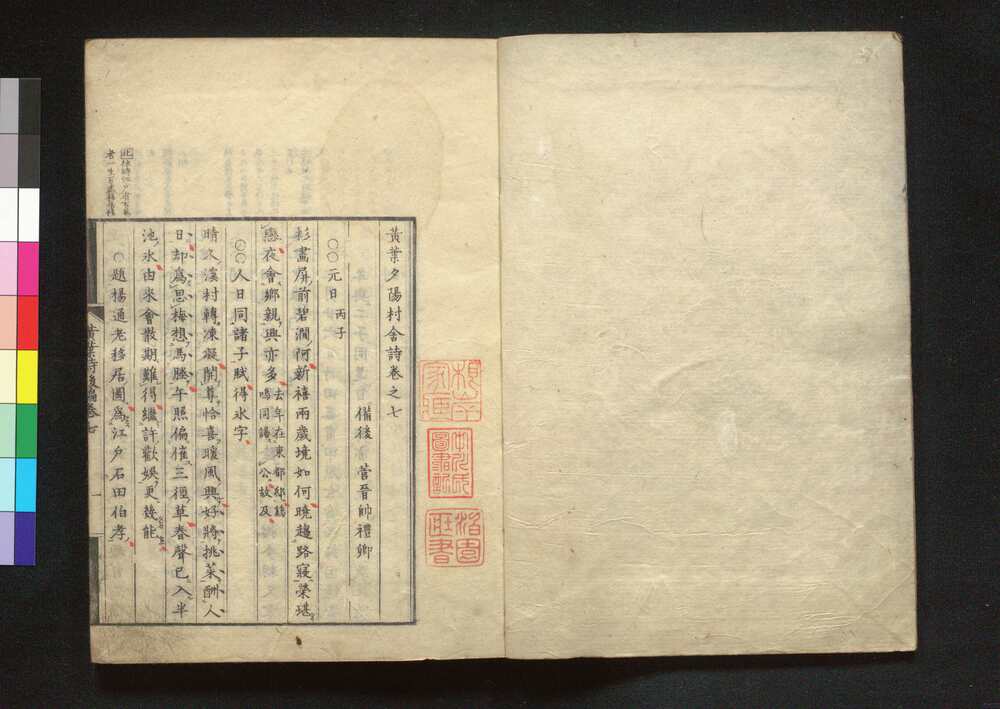 黃葉夕陽村舍詩卷之七
備後 菅晉帥禮卿
○○元日 丙子
彩畫屏前碧澗阿新禧兩歲境如何曉趨路寢榮堪
戀夜會鄉親興亦多 去年在東都邸
鳴同諸公故及
○○人日同諸子賦得氷字
晴入溪村轉凍凝開尊恰喜暖風興好將挑菜酬人
日却爲思梅想馬塍午照偏催三徑草春聲已入半
池氷由來會散期難得繼許歡娛更幾能
○題楊通老移居圖爲江戶石田伯孝
黃葉詩後編卷七
一